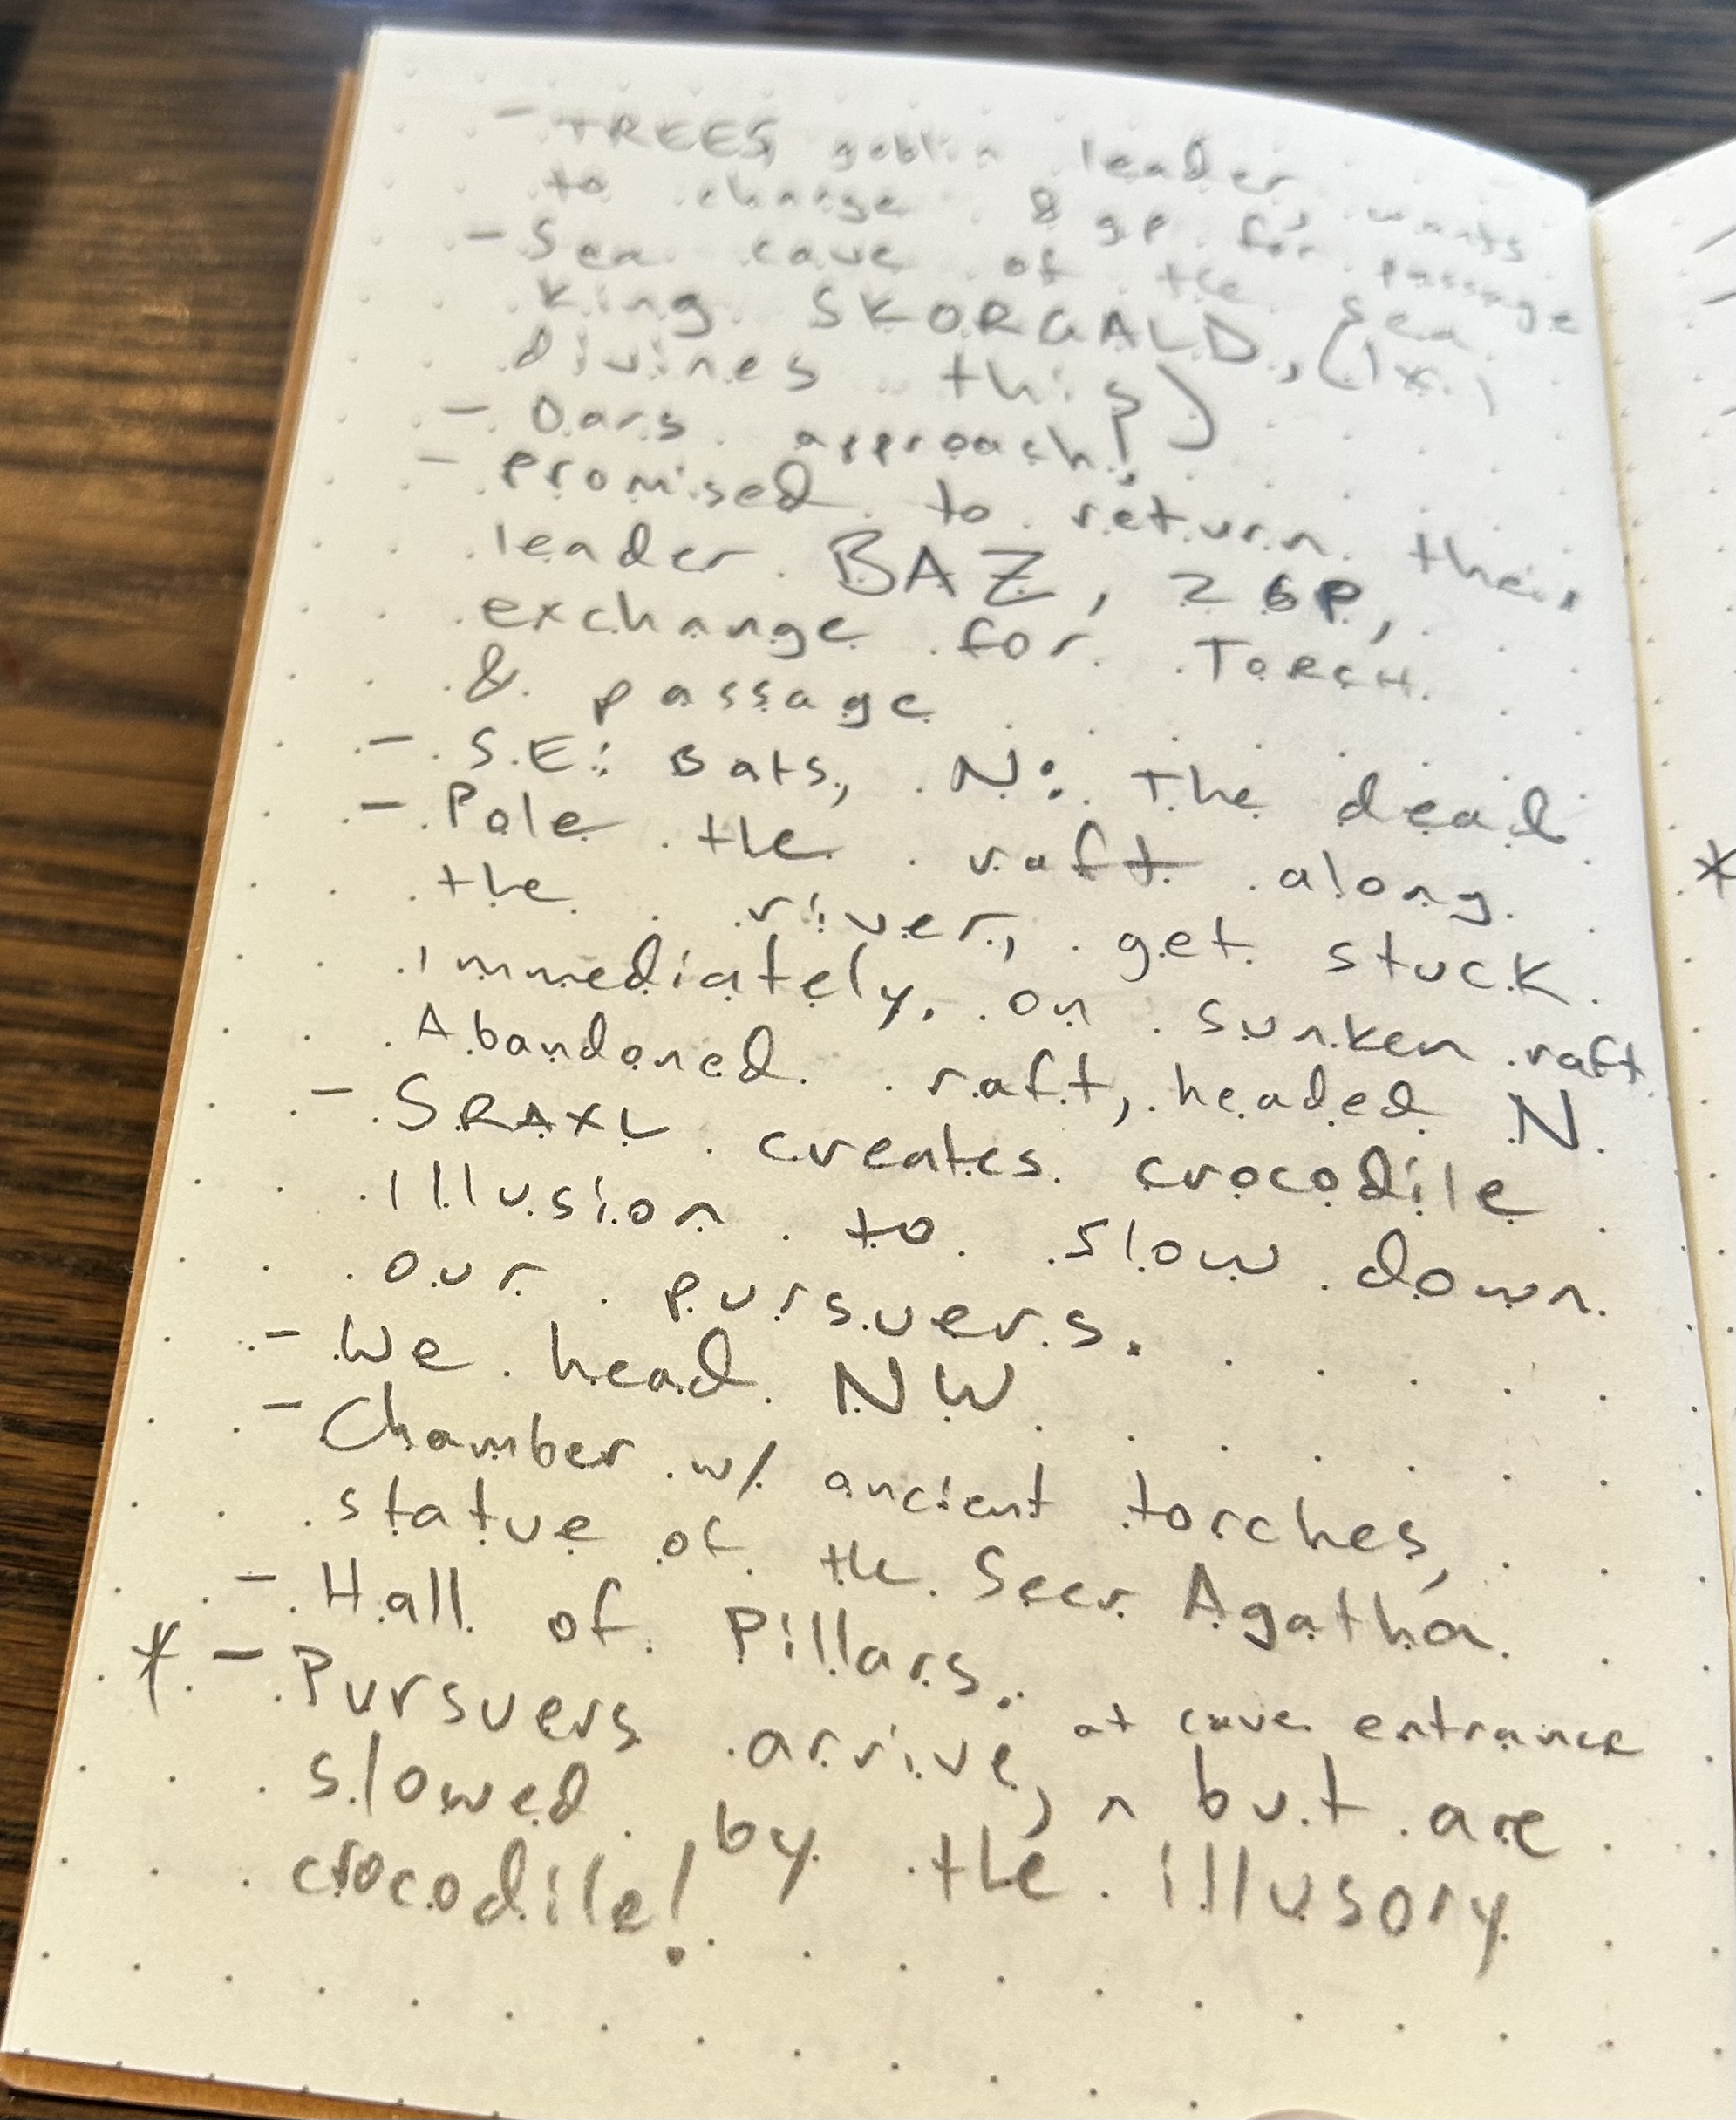 - TREES, goblin leader, wants
to charge 8 gp for passage
- Sea cave of the Sea
King SKORGALD, (
divines this)
- Oars approach!
- promised to return their
leader BAZ, 2 GP,
exchange for TORCH
& passage
- S.E: Bats, N: The dead
- Pole the raft along
the river, get stuck
immediately, on sunken raft
Abandoned raft, headed N
- SRAXL creates crocodile
illusion to slow down
our pursuers.
- We head NW
- Chamber w/ ancient torches,
statue of the Seer Agatha
- Hall of Pillars.
* - Pursuers arrive, ^ at cave entrance but are
slowed by the illusory
crocodile!